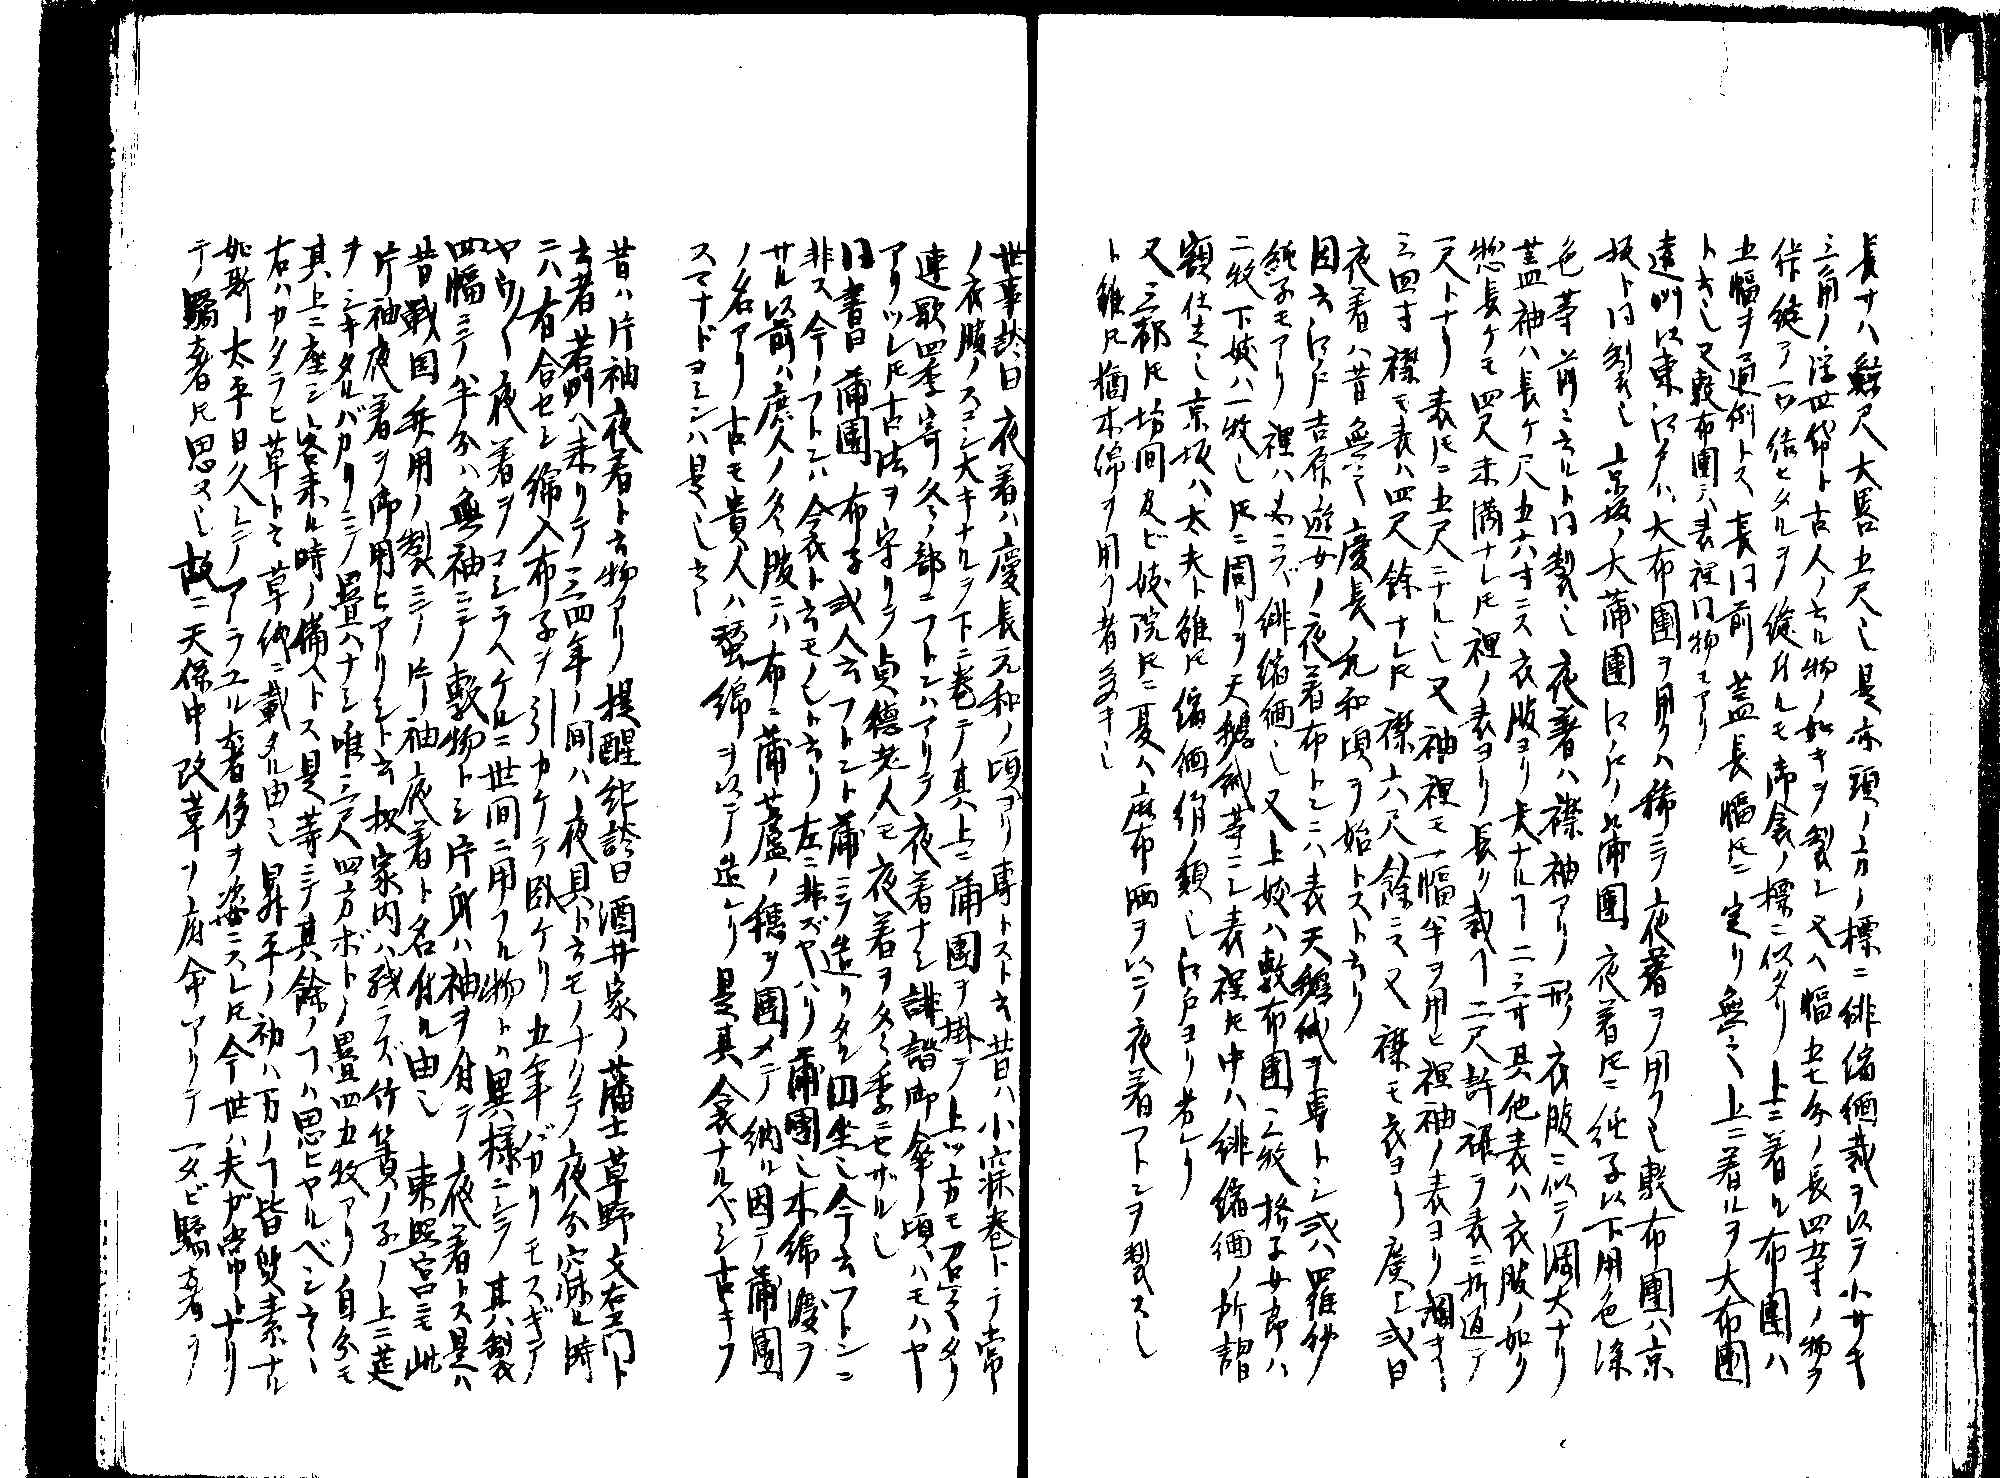 長サハ鯨尺大畧五尺也是亦頭ノ方ノ標ニ緋縮緬裁ヲ以テ小サキ
三角ノ浮世袋ト古人ノ云ル物ノ如キヲ製シ又ハ幅五七分ノ長四五寸ノ物ヲ
縫テ一ツ結ヒタルヲ縫付ルモ ノ標ニ似タリ上ニ着ル布團ハ
五幅ヲ通例トス長同前 蓋長幅トモニ定リ無之上ニ着ルヲ大布團
ト云也又敷布團ニハ表裡同物モアリ
遠州以東江戸ハ大布團ヲ用フハ稀ニテ夜着ヲ用フ也敷布團ハ京
坂ト同製也 京坂ノ大蒲團江戸ノ 蒲團夜着トモニ純子以下用色染
色等前ニ云ルト同製也夜着ハ襟袖アリ形衣服ニ似テ濶大ナリ
蓋袖ハ長ケ尺五六寸ニス衣服ヨリ大ナルヿ二三寸其他表ハ衣服ノ如ク
惣長ケモ四尺未満ナレトモ裡ノ表ヨリ長ク裁ヿ二尺許裾ヲ表ニ折返テ
一尺トナリ表トモニ五尺ニナル也又袖裡モ一幅半ヲ用ヒ裡袖ノ表ヨリ濶キ
三四寸襟モ表ハ四尺餘ナレトモ襟六尺餘ニス又襟モ衣ヨリ廣シ或日
夜着ハ昔無之慶長元和頃ヲ始トスト云リ
因云江戸吉原遊女ノ夜着布トンニハ表天鵞絨ヲ専トシ或ハ羅紗
純子モアリ裡ハ必ラズ緋縮緬也又上妓ハ敷布團三枚格子女郎ハ
二枚下妓ハ一枚也トモニ周リヲ天鵞絨等ニシ表裡トモ中ハ緋縮緬ノ所謂
額仕立也京坂ハ太夫ト雖トモ縮緬絹ノ類也江戸ヨリ劣レリ
又三都トモ坊間及ビ妓院トモニ夏ハ麻布晒ヲ以テ夜着フトンヲ製ス也
ト雖トモ猶木綿ヲ用フ者多キ也
世事談曰夜着ハ慶長元和ノ頃ヨリ専トスト云昔ハ小寐巻トテ常
ノ衣服ノスコシ大キナルヲ下ニ巻テ其上ニ蒲團ヲ掛テ上ツ方モ召レタリ
連歌四季寄冬ノ部ニフトンハアリテ夜着ナシ誹諧御傘ノ頃ハモハヤ
アリツレトモ古法ヲ守リテ貞徳老人モ夜着ヲ冬季ニモセザル也
同書曰蒲團 布子或人云フトント蒲ニテ造リタル団坐也今云フトンニ
非ス今ノフトンハ衾ト云モノ也ト云リ左ニ非ズヤハリ蒲團也木綿渡ヲ
サル以前ハ庶人ノ冬服ニハ布ニ蒲芦ノ穂ヲ團メテ納ル因テ蒲團
ノ名アリ古モ貴人ハ蚕綿ヲ以テ造レリ是真衾ナルベシ古キフ
スマナドヨミシハ是也ト云々
昔ハ片袖夜着ト云物アリ提醒紀談曰酒井家ノ藩士草野文左門ト
云者若州ヘ来リテ三四年ノ間ハ夜具ト云モノナクテ夜分寐ル時
ニハ有合セシ綿入布子ヲ引カケテ臥ケリ五年バカリモスギテ
ヤウ〳〵夜着ヲコシラヘケルニ世間ニ用フル物トハ異様ニシテ其製
四幅ニテ半分ハ無袖ニテ敷物トシ片身ハ袖ヲ付テ夜着トス是ハ
昔戦国専用ノ製ニテ片袖夜着ト名付ル由也 東照宮ニモ此
片袖夜着ヲ御用ヒアリシト云扨家内ハ残ラズ竹簀ノ子ノ上ニ莚
ヲシキタルバカリニテ畳ハナシ唯三尺四方ホトノ畳四五枚アリ自分モ
其上ニ座シ客来ル時ノ備ストス是等ニテ其餘ノヿハ思ヒヤルベシ云々
右ハカタラヒ草ト云草紙ニ載タル由也 昇平ノ初ハ万ノヿ皆質素ナル
如斯太平日久シテアラユル奢侈ヲ姿ニスレトモ今世ハ夫ガ常トナリ
テ驕奢トモ思ヌ也故ニ天保中改革ヲ府命アリテ一タビ驕奢ヲ